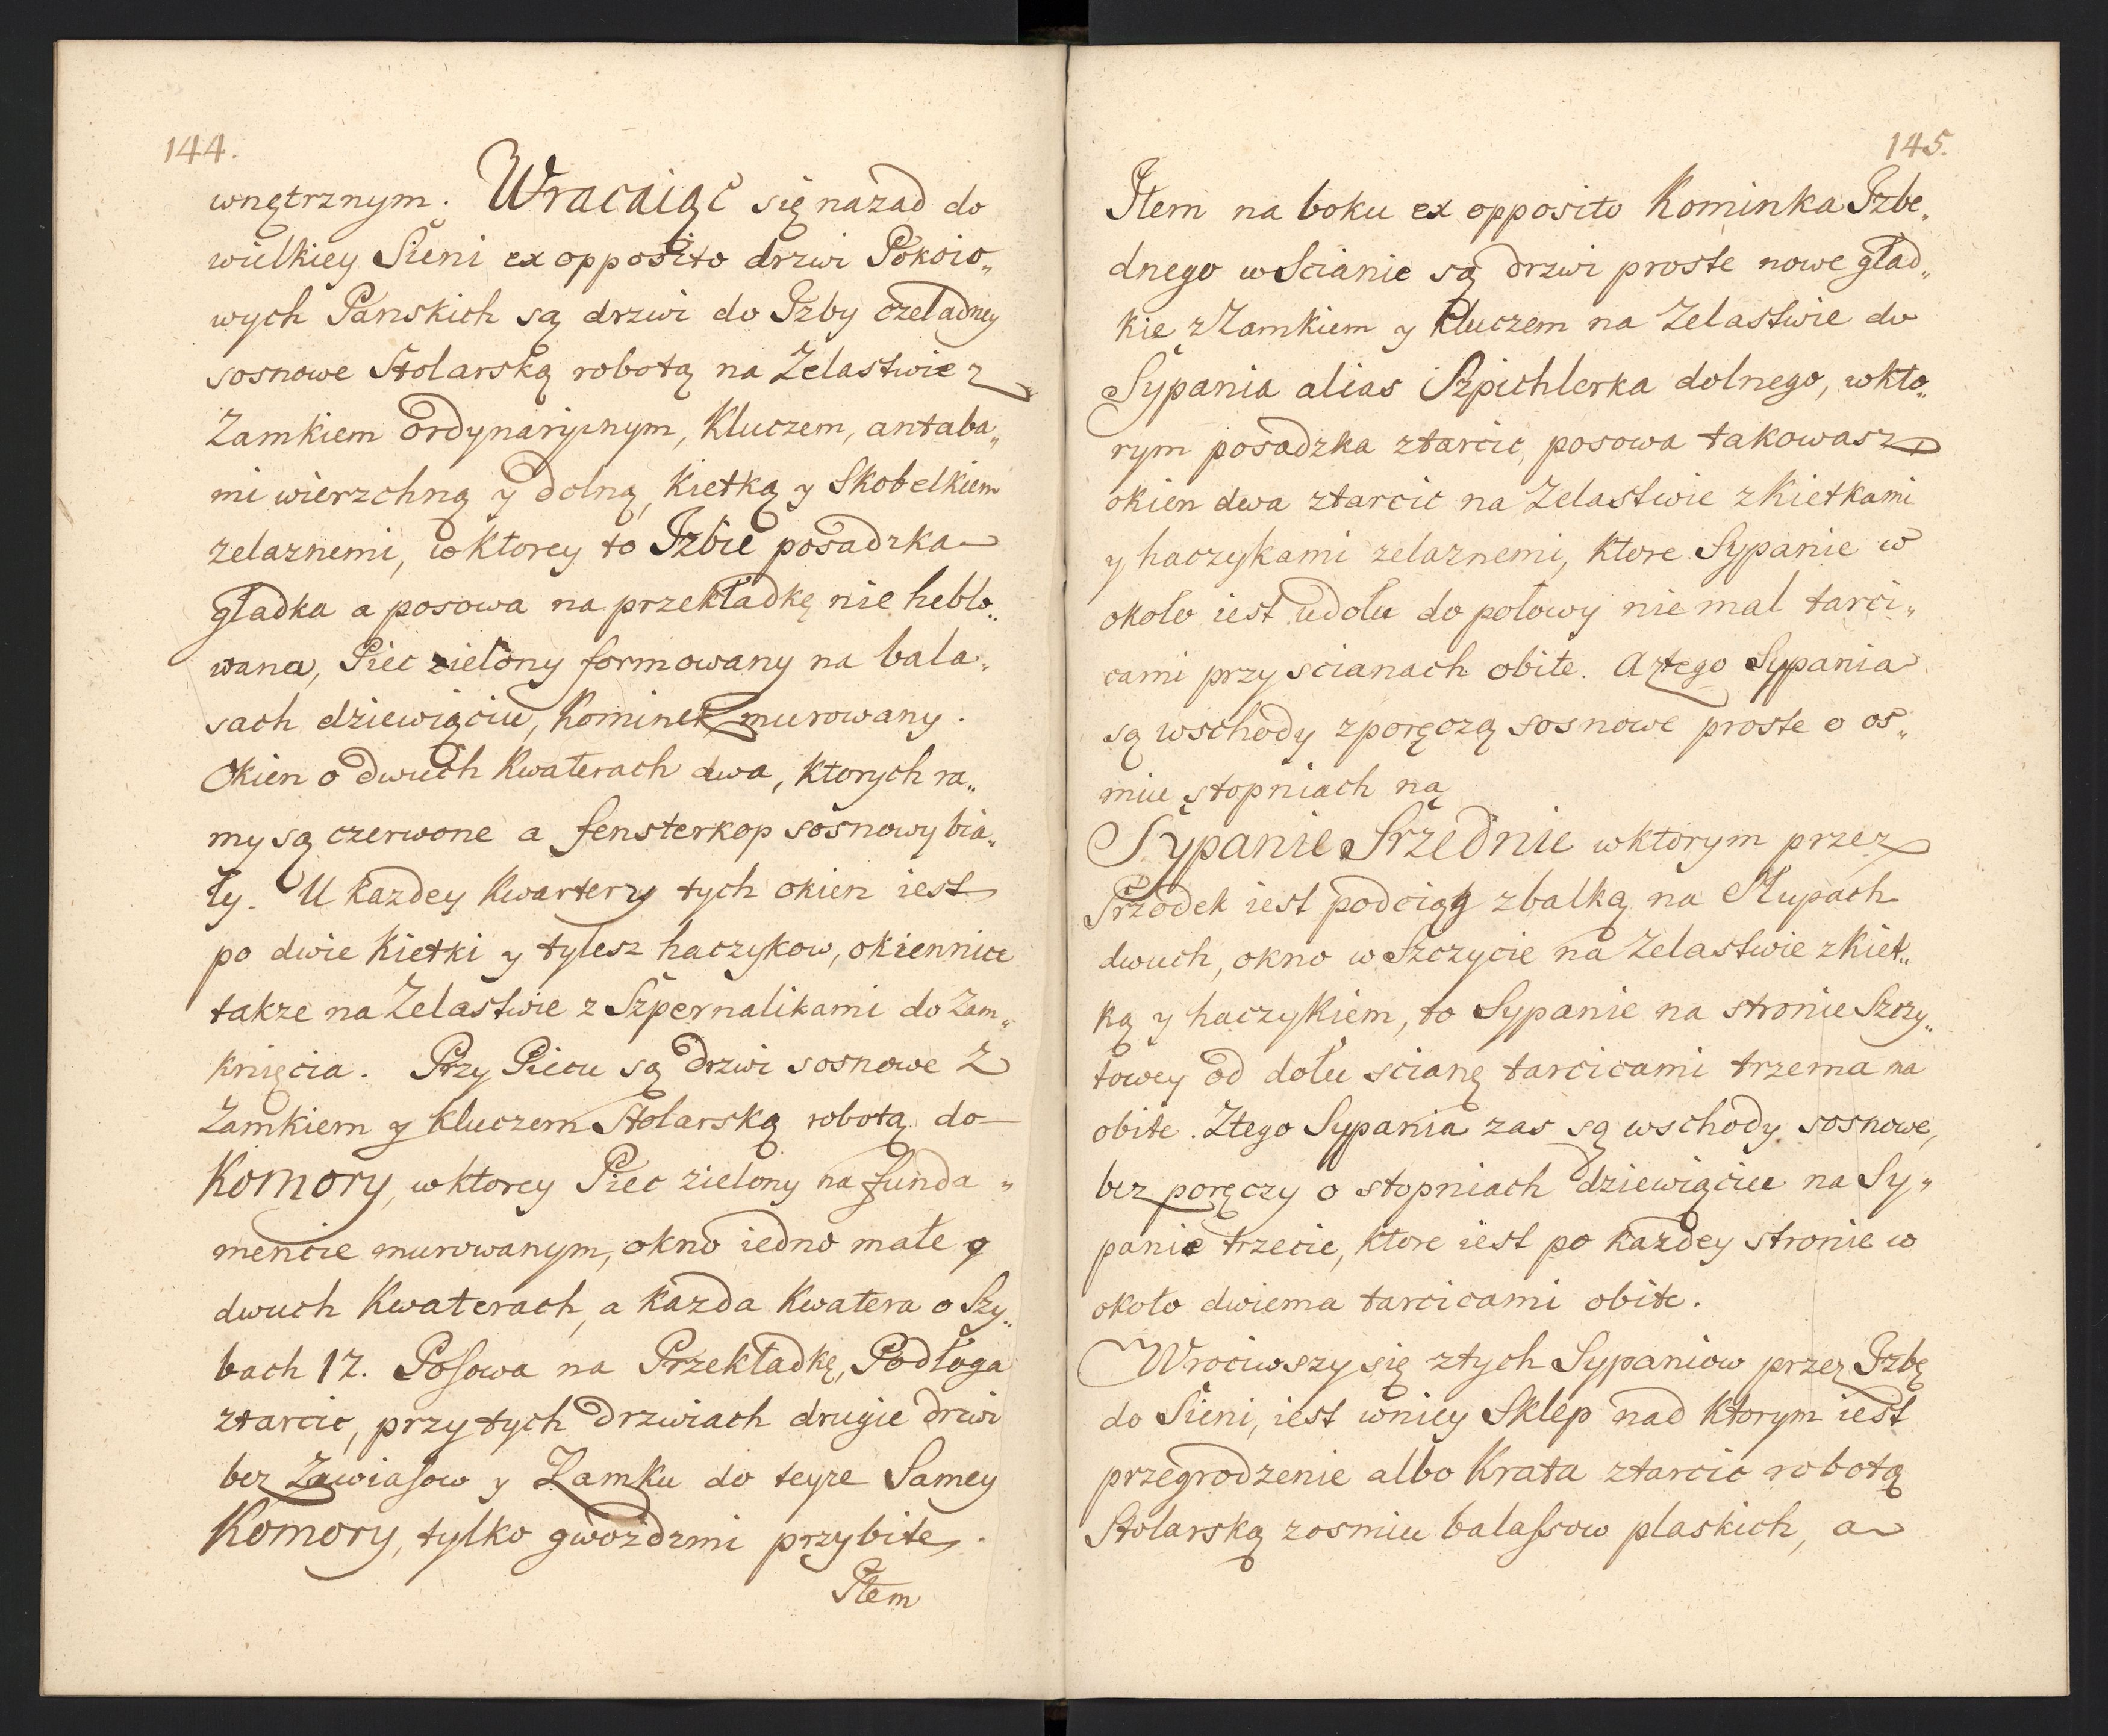 144.
wnętrznym. Wracaiąc się nazad do
wielkiey Sieni ex opposito drzwi Pokoio„
wych Panskich są drzwi do Izby czeladney
sosnowe Stolarską robotą na Zelastwie z
Zamkiem ordynaryinym, Kluczem, antaba„
mi wierzchną y dolną, Kietką y Skobelkiem
zelaznemi, w Ktorey to Izbie posadzka
gładka a posowa na przekładkę nie heblo„
wana, Piec zielony formowany na bala„
sach dziewiąciu, Kominek murowany.
Okien o dwuch Kwaterach dwa, Ktorych ra„
my są czerwone a fensterkop sosnowy bia„
ły. U kazdey Kwartery tych okien iest
po dwie Kietki y tylesz haczykow, okiennice
takze na Zelastwie z Szpernalikami do Zam„
knięcia. Przy Piecu są drzwi sosnowe z
Zamkiem y Kluczem Stolarską robotą do
Komory, w ktorey Piec zielony na funda„
mencie murowanym, okno iedno małe o
dwuch Kwaterach, a Kazda Kwatera o Szy„
bach 12. Posowa na Przekładkę, Podłoga
ztarcic, przy tych drzwiach drugie drzwi
bez Zawiasow y Zamku do teyze Samey
Komory, tylko gwozdzmi przybite.
Item
145.
Item na boku ex opposito Kominka Izbe„
dnego w Scianie są drzwi proste nowe gład„
kie z Zamkiem y Kluczem na Zelastwie do
Sypania alias Szpichlerka dolnego, w kto„
rym posadzka ztarcic, posowa takowasz
okien dwa ztarcic na Zelastwie z Kietkami
y haczykami zelaznemi, Ktore Sypanie w
około iest udołu do połowy nie mal tarci„
cami przy scianach obite. A ztego Sypania
są wschody zporęczą sosnowe proste o os„
miu stopniach na
Sypanie Srzednie w ktorym przez
Srzodek iest podciąg zbalką na Słupach
dwuch, okno w Szczycie na Zelastwie z Kiet„
ką y haczykiem, to Sypanie na stronie Szczy„
towey od dołu scianę tarcicami trzema na
obite. Ztego Sypania zas są wschody sosnowe,
bez poręczy o stopniach dziewiąciu na Sy„
panie trzecie, Ktore iest po kazdey stronie w
około dwiema tarcicami obite.
Wrociwszy się ztych Sypaniow przez Izbę
do Sieni, iest wniey Sklep nad Ktorym iest
przegrodzenie albo Krata ztarcic robotą
Stolarską zosmiu balassow plaskich, a